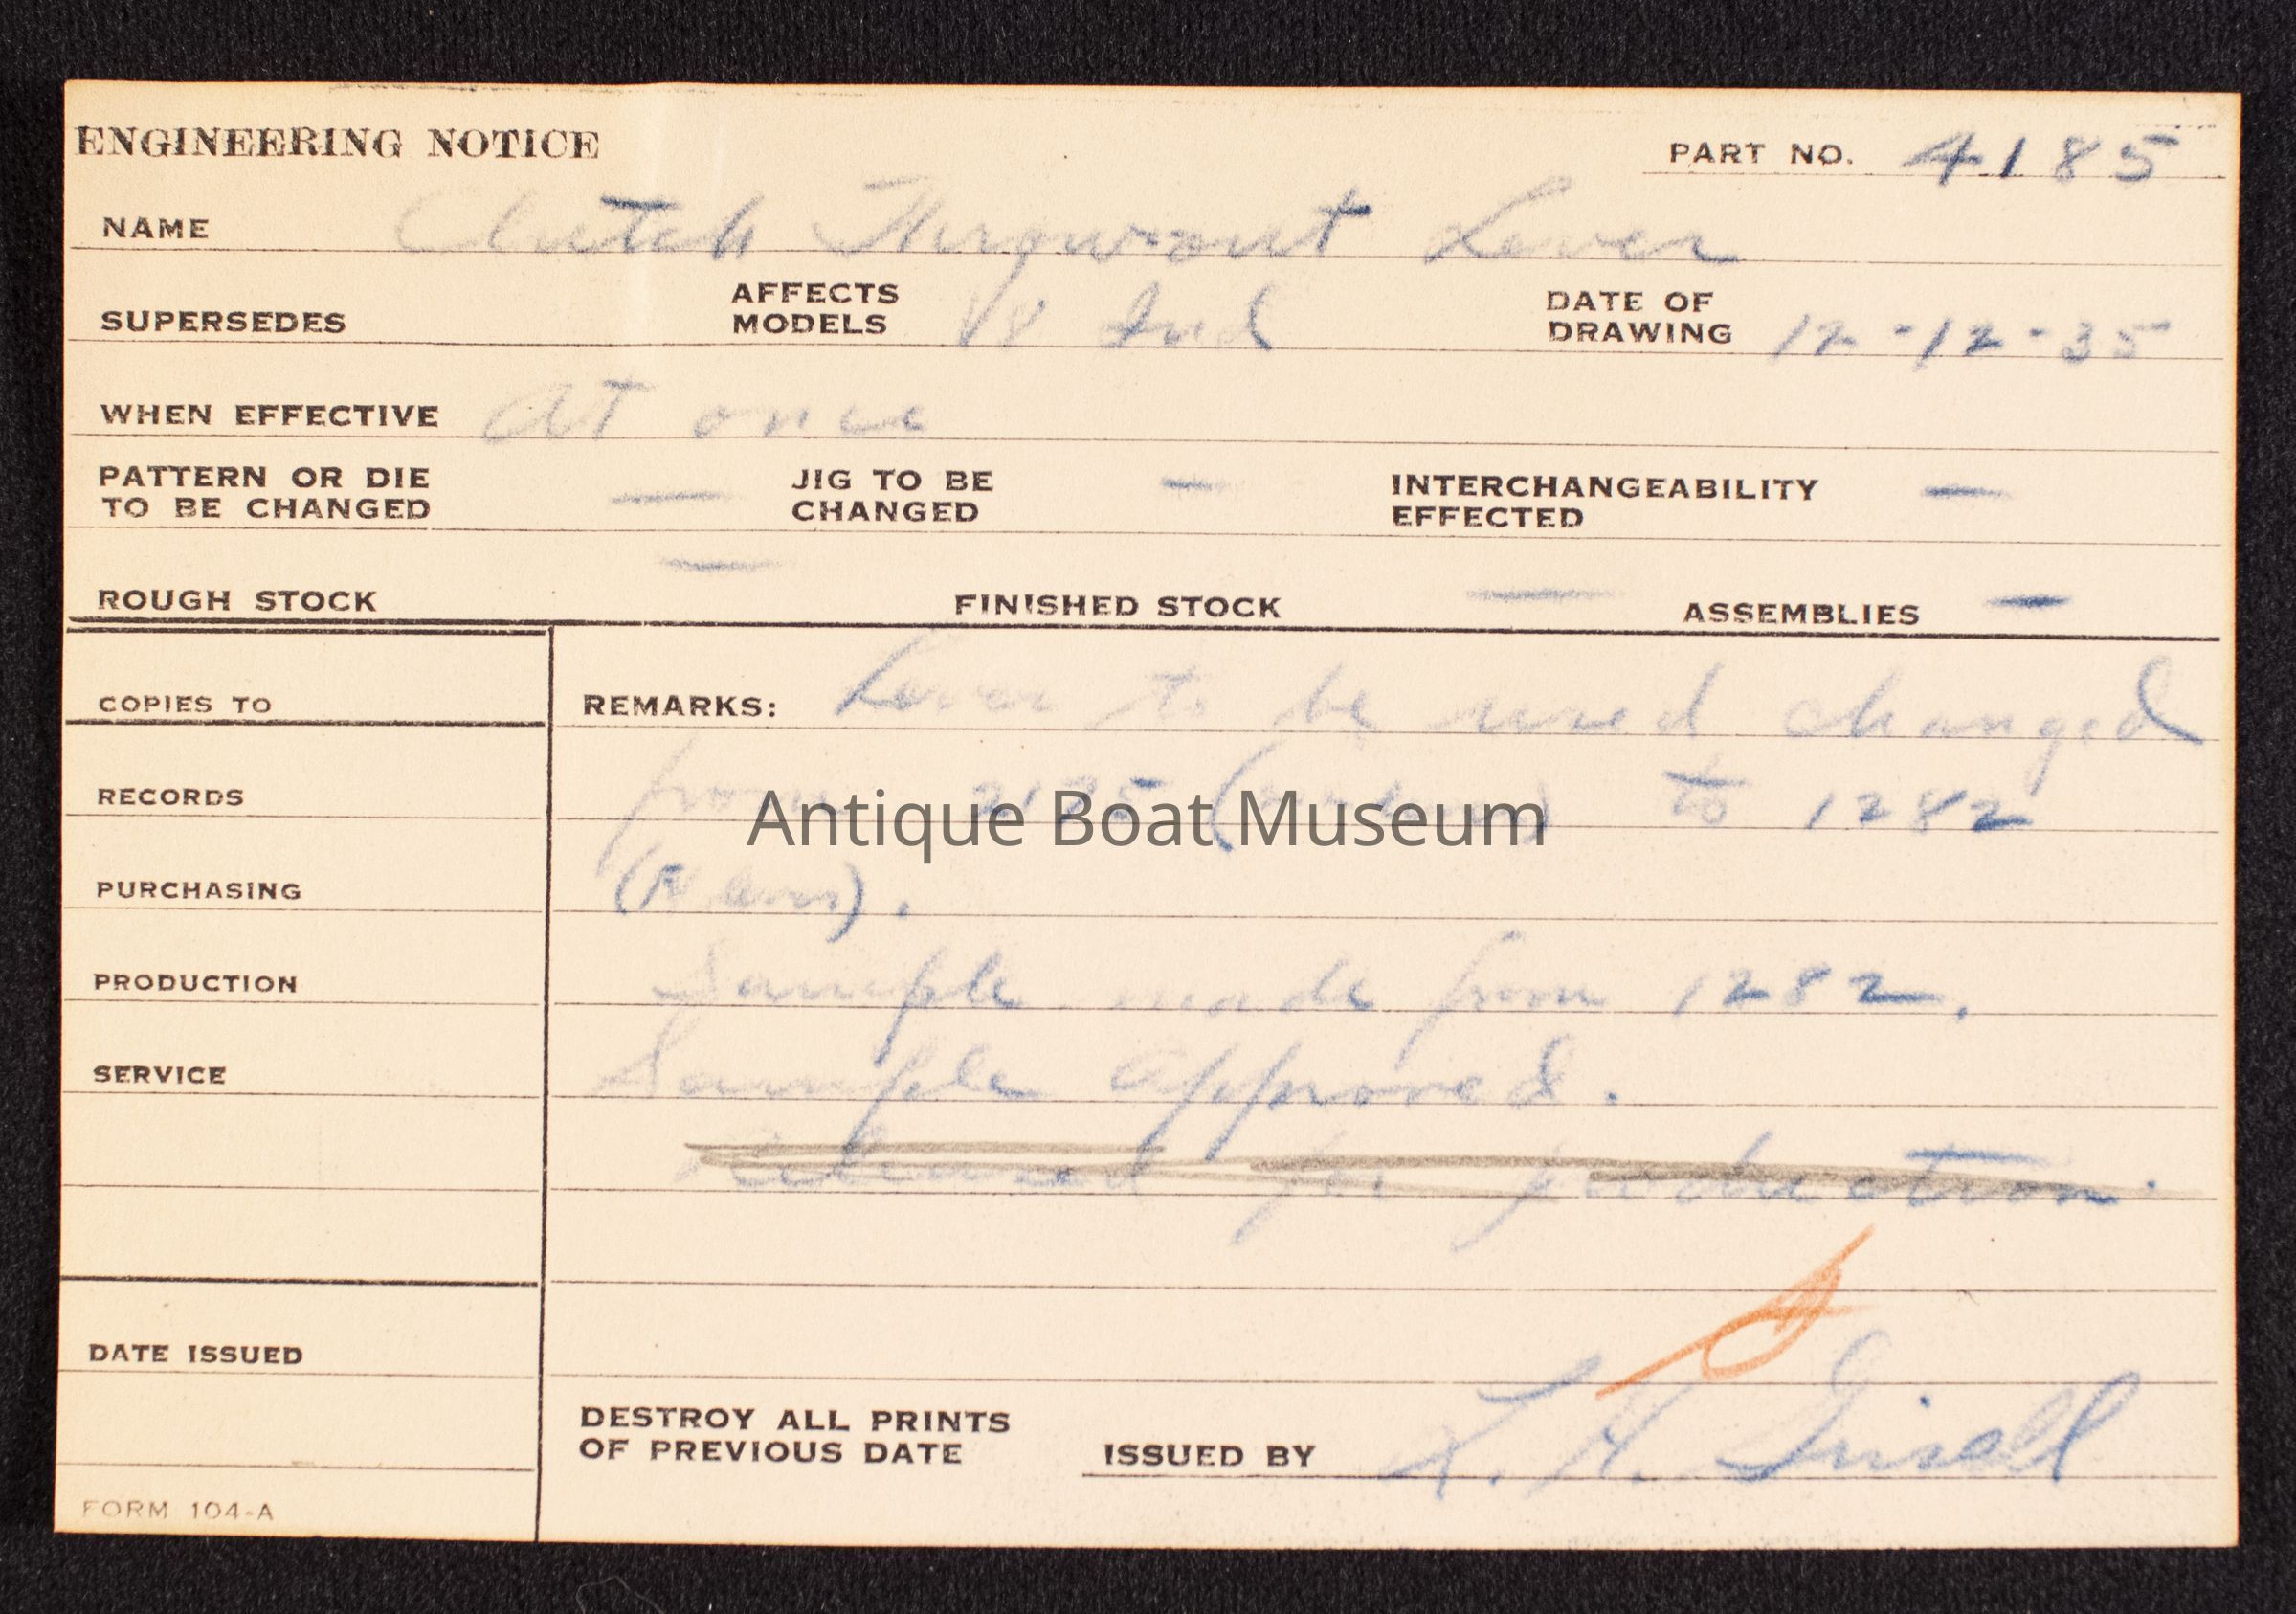 ENGINEERING NOTICE
PART NO. 4185
NAME Clutch Throwout Lever
SUPERSEDES AFFECTS MODELS V8 Ind DATE OF DRAWING 12-12-35
WHEN EFFECTIVE At once
PATTERN OR DIE TO BE CHANGED — JIG TO BE CHANGED — INTERCHANGEABILITY EFFECTED —
ROUGH STOCK — FINISHED STOCK — ASSEMBLIES —
COPIES TO
REMARKS: Lever to be used changed
RECORDS
from to 1282
PURCHASING
PRODUCTION
Sample made from 1282.
SERVICE
Sample approved.
Released for production.
DATE ISSUED
DESTROY ALL PRINTS
OF PREVIOUS DATE
ISSUED BY
FORM 104-A
Antique Boat Museum